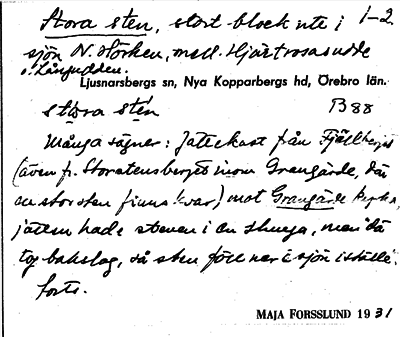 Stora sten, stort block ute i 1-2
sjön N. Hörken, mell. Hjärtrosaudde
o. Långudden.
Ljusnarsbergs sn, Nya Kopparbergs hd, Örebro län.
stora sten B88
Många sägner: Jättekast från Fjällberget
(även fr. Storstensberget inom Grangärde, där
en stor sten finns kvar) mot Grangärde kyrka,
jätten hade stenen i en slunga, men då
tog bakslag, så sten föll ner i sjön i stället.
forts.
MAJA FORSSLUND 1931